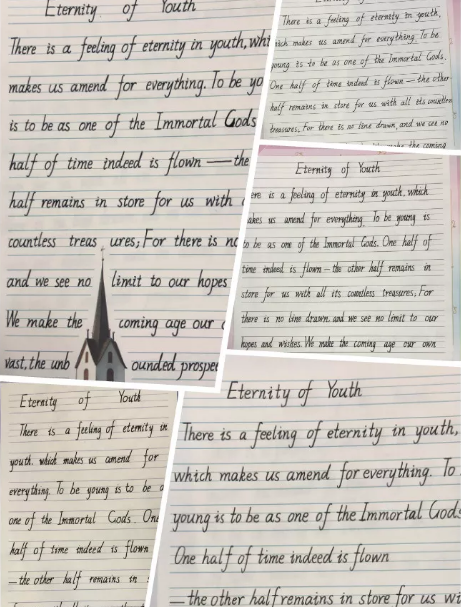 Eternity of Youth
There is a feeling of eternity in youth, whi
makes us amend for everything. To be yo
is to be as one of the Immortal Gods
half of time indeed is flown — the
half remains in store for us with
countless treas ures; For there is no
and we see no limit to our hopes
We make the coming age our
vast, the unb ounded prospe
There is a feeling of eternity in youth,
which makes us amend for everything. To be
young is to be as one of the Immortal Gods.
One half of time indeed is flown — the other
half remains in store for us with all its countless
treasures, For there is no line drawn, and we see no
make the coming
Eternity of Youth
ere is a feeling of eternity in youth, which
akes us amend for everything. To be young is
to be as one of the Immortal Gods. One half of
time indeed is flown — the other half remains in
store for us with all its countless treasures; For
there is no line drawn, and we see no limit to our
hopes and wishes. We make the coming age our own
Eternity of Youth
There is a feeling of eternity in
youth, which makes us amend for
everything. To be young is to be
one of the Immortal Gods. One
half of time indeed is flown
— the other half remains in
Eternity of Youth
There is a feeling of eternity in youth,
which makes us amend for everything. To
young is to be as one of the Immortal Gods
One half of time indeed is flown
— the other half remains in store for us wi